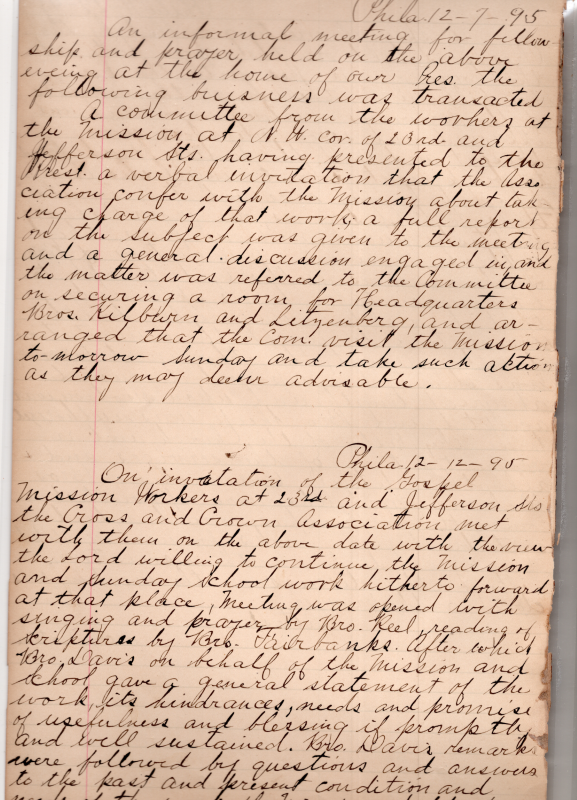 Phila 12-7-95
An informal meeting for fellow-
ship and prayer held on the above
evening at the home of our Pres. the
following buisness was transacted
A committee from the workers at
the Mission at N.W. cor. of 23rd and
Jefferson Sts. having presented to the
Prest. a verbal invitation that the Asso
ciation confer with the Mission about tak
ing charge of that work, a full report
on the subject was given to the meeting
and a general discussion engaged in, and
the matter was referred to the Committee
on securing a room for Headquarters
Bros. Kilburn and Litzenberg, and ar-
ranged that the Com. visit the Mission
to-morrow Sunday and take such action
as they may deem advisable.
Phila 12-12-95
On invatation of the Gospel
Mission Workers at 23rd and Jefferson Sts
the Cross and Crown Association met
with them on the above date with the view
the Lord willing to continue, the Mission
and Sunday School work hitherto forward
at that place, Meeting was opened with
singing and prayer by Bro. Keel, reading of
scriptures by Bro. Fairbanks. After which
Bro. Davis on behalf of the Mission and
School gave a general statement of the
work, its hindrances, needs and promise
of usefulness and blessing if promptly
and well sustained. Bro. Davis remarks
were followed by questions and answers
to the past and present condition and